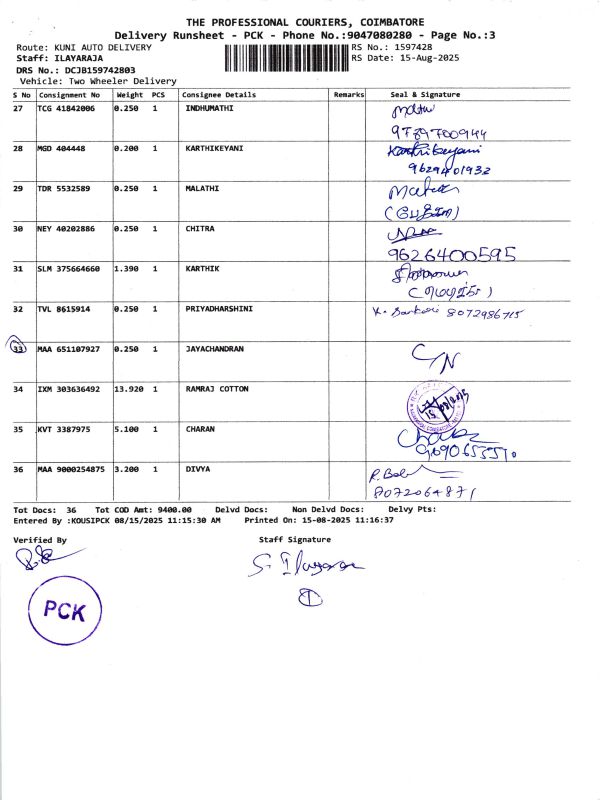 THE PROFESSIONAL COURIERS, COIMBATORE
Delivery Runsheet - PCK - Phone No.:9047080280 - Page No.:3
Route: KUNI AUTO DELIVERY RS No.: 1597428
Staff: ILAYARAJA RS Date: 15-Aug-2025
DRS No.: DCJB159742803
Vehicle: Two Wheeler Delivery
S No Consignment No Weight PCS Consignee Details Remarks Seal & Signature
27 TCG 41842006 0.250 1 INDHUMATHI
28 MGD 404448 0.200 1 KARTHIKEYANI Karthikeyani
9629401932
29 TDR 5532589 0.250 1 MALATHI
30 NEY 40202886 0.250 1 CHITRA
9626400595
31 SLM 375664660 1.390 1 KARTHIK
32 TVL 8615914 0.250 1 PRIYADHARSHINI 8072986715
33 MAA 651107927 0.250 1 JAYACHANDRAN C/N
34 IXM 303636492 13.920 1 RAMRAJ COTTON
35 KVT 3387975 5.100 1 CHARAN
36 MAA 9000254875 3.200 1 DIVYA
8072064871
Tot Docs: 36 Tot COD Amt: 9400.00 Delvd Docs: Non Delvd Docs: Delvy Pts:
Entered By :KOUSIPCK 08/15/2025 11:15:30 AM Printed On: 15-08-2025 11:16:37
Verified By Staff Signature
S. Ilayaraja
1
PCK